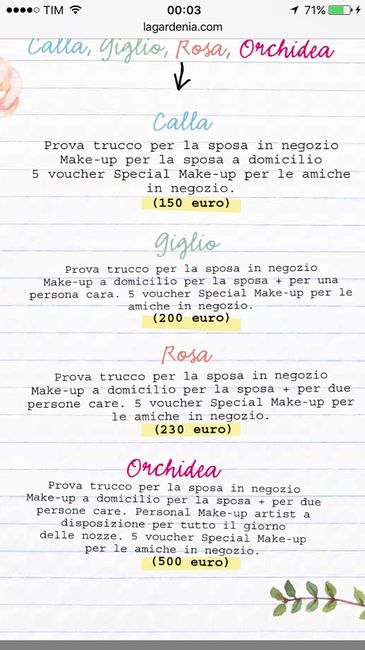 TIM 00:03 71%
lagardenia.com
Calla, Giglio, Rosa, Orchidea
Calla
Prova trucco per la sposa in negozio
Make-up per la sposa a domicilio
5 voucher Special Make-up per le amiche
in negozio.
(150 euro)
Giglio
Prova trucco per la sposa in negozio
Make-up a domicilio per la sposa + per una
persona cara. 5 voucher Special Make-up per le
amiche in negozio.
(200 euro)
Rosa
Prova trucco per la sposa in negozio
Make-up a domicilio per la sposa + per due
persone care. 5 voucher Special Make-up per
le amiche in negozio.
(230 euro)
Orchidea
Prova trucco per la sposa in negozio
Make-up a domicilio per la sposa + per due
persone care. Personal Make-up artist a
disposizione per tutto il giorno
delle nozze. 5 voucher Special Make-up
per le amiche in negozio.
(500 euro)